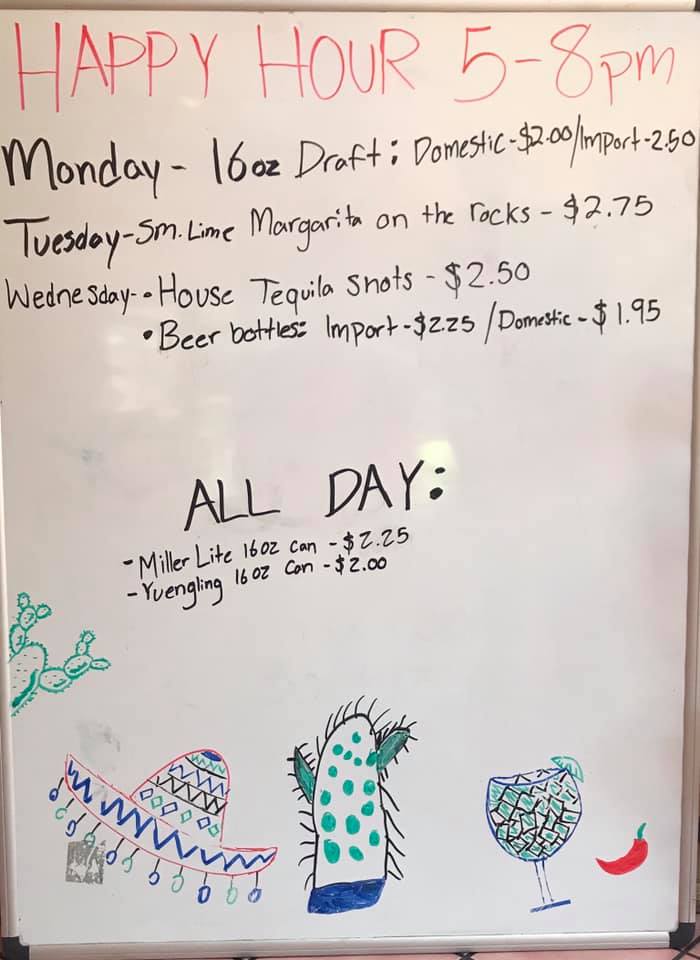 HAPPY HOUR 5-8pm
Monday- 16oz Draft: Domestic-$2.00/Import-2.50
Tuesday-Sm. Lime Margarita on the rocks - $2.75
Wednesday-•House Tequila shots - $2.50
•Beer bottles: Import-$2.25 /Domestic-$1.95
ALL DAY:
-Miller Lite 16oz can -$2.25
-Yuengling 16oz Can -$2.00